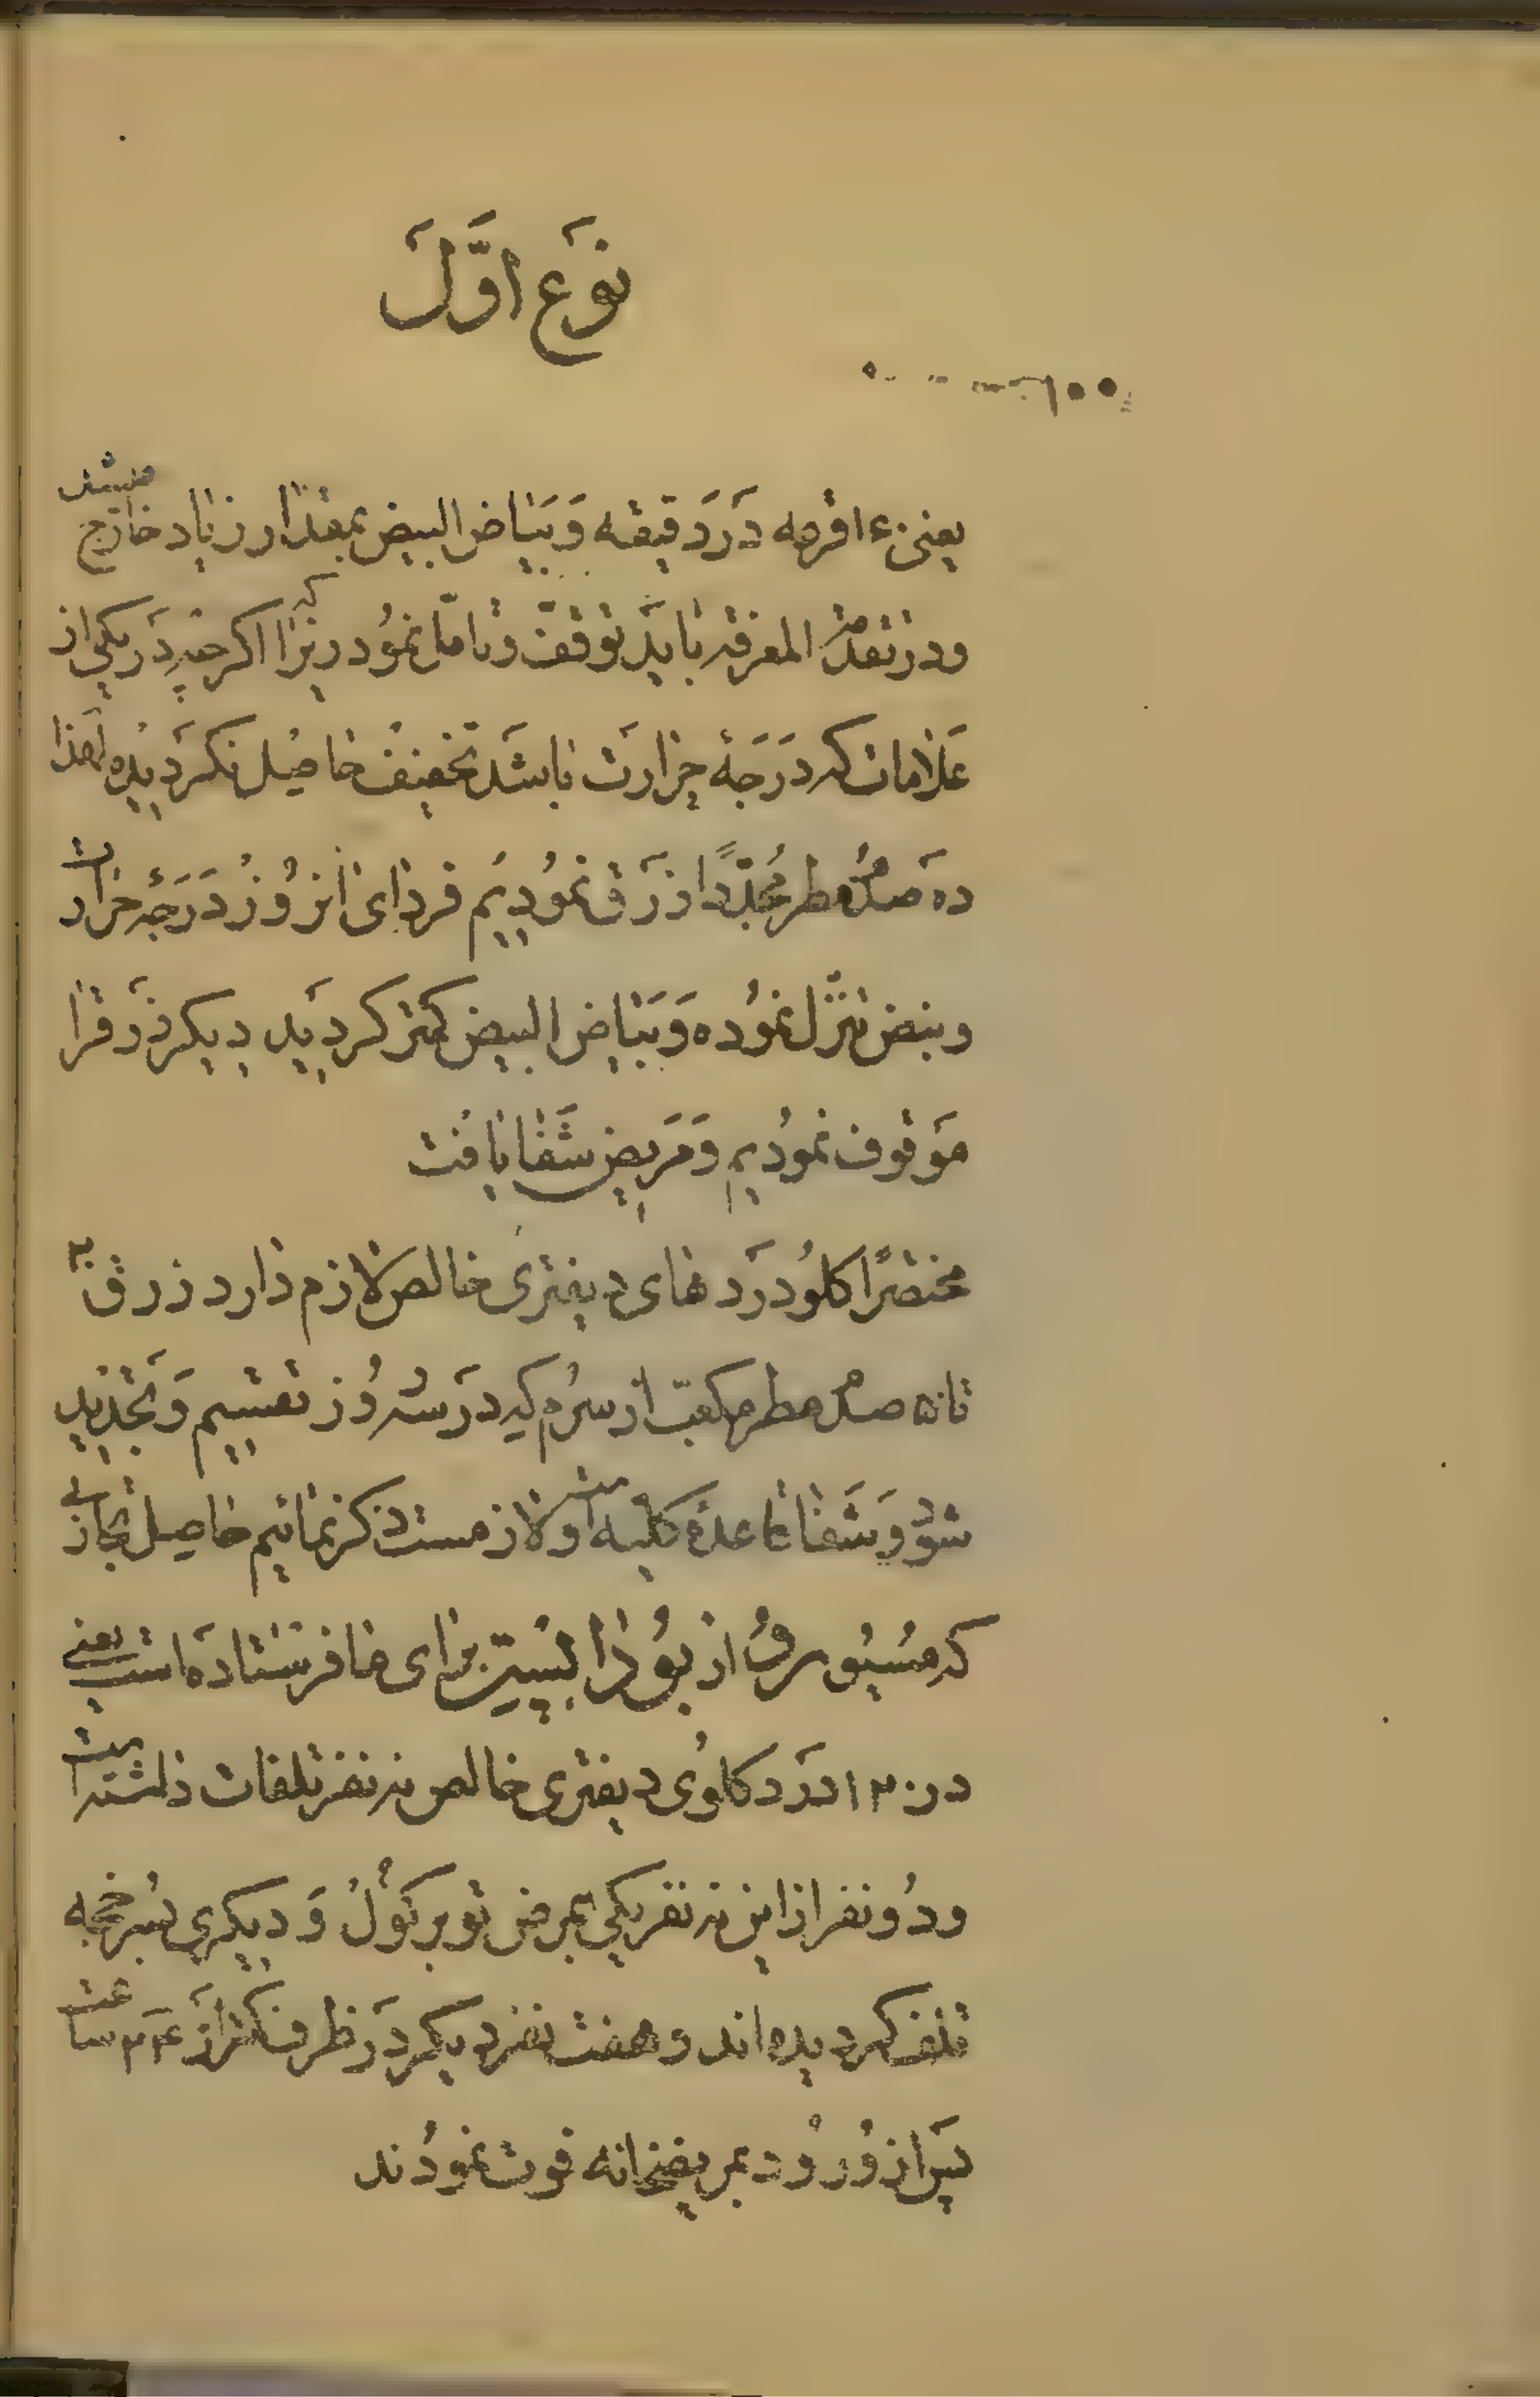 نوَع اوَّلَ
یعنی ۱۴۰ قرعه دَردَقیقه وَبَیاض البیض بمقدار زیاد خارج میشد
ودر تقدمة المعرفة باید توقّف وتامّل نمُود زیرا که اکرچه دَر یکی از
عَلامات که دَرَجهٔ حرارت باشد تخفیف حاصِل نکردیده لهذا
ده صدم مطر مُجدّداً زرَق نمُودیم فردای انرُوز دَرَجهٔ حرارت
ونبض تنزّل نمُوده وَبَیاض البیض کمتر کردید دیکر زرقرا
مَوقوف نمودیم وَمَریض شَفا یافت
مختصراً کلُودرَدهای دیفتری خالص لازم دارد زرق ۳۰
تا ۵۰ صدم مطر مکعّب از سرُم که دَر سه رُوز تقسیم وَتجدید
شود وَشَفا قاعدهٔ کلیه است ولازمست ذکر نمائیم حاصِل تجاربی
که مُسیُو رُو از بُوداپست برای ما فرستاده است یعنی
در ۱۲۰ دَرد کلوی دیفتری خالص نه نفر تلفات داشته است
ودُو نفر از این نه نفر یکی بمرض توبرکولُ وَدیکری بسرخجه
تلف کردیده اند وهفت نفر دیکر دَر ظرف کمتر از ۲۴ ساعت
پَس از وُرُود بمریضخانه فوت نمُودند